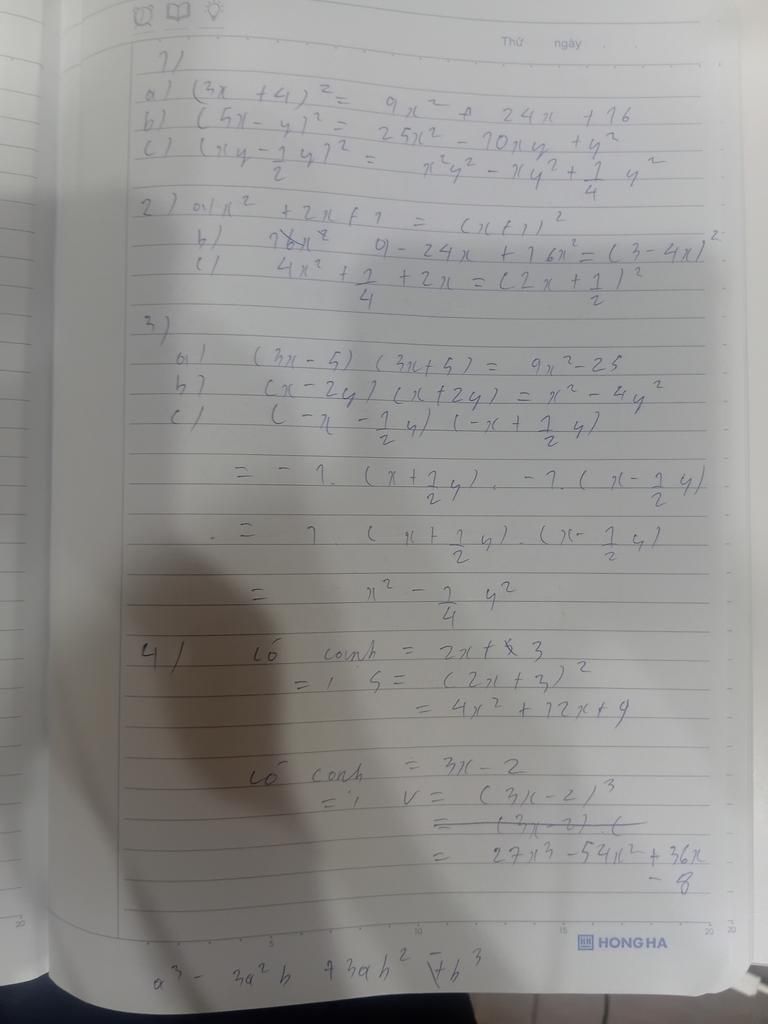 Thứ ngày
1/
a) (3x + 4)² = 9x² + 24x + 16
b) (5x - y)² = 25x² - 10xy + y²
c) (xy - 1/2 y)² = x²y² - xy² + 1/4 y²
2) a) x² + 2x + 1 = (x + 1)²
b) 9 - 24x + 16x² = (3 - 4x)²
c) 4x² + 1/4 + 2x = (2x + 1/2)²
3)
a) (3x - 5) (3x + 5) = 9x² - 25
b) (x - 2y) (x + 2y) = x² - 4y²
c) (-x - 1/2 y) (-x + 1/2 y)
= -1. (x + 1/2 y). -1. (x - 1/2 y)
= 1 (x + 1/2 y). (x - 1/2 y)
= x² - 1/4 y²
4) Có cạnh = 2x + 3
=> S = (2x + 3)²
= 4x² + 12x + 9
Có cạnh = 3x - 2
=> V = (3x - 2)³
= (3x - 2). (
= 27x³ - 54x² + 36x
- 8
20 5 10 15 20 20
HONG HA
a³ - 3a²b + 3ab² - b³